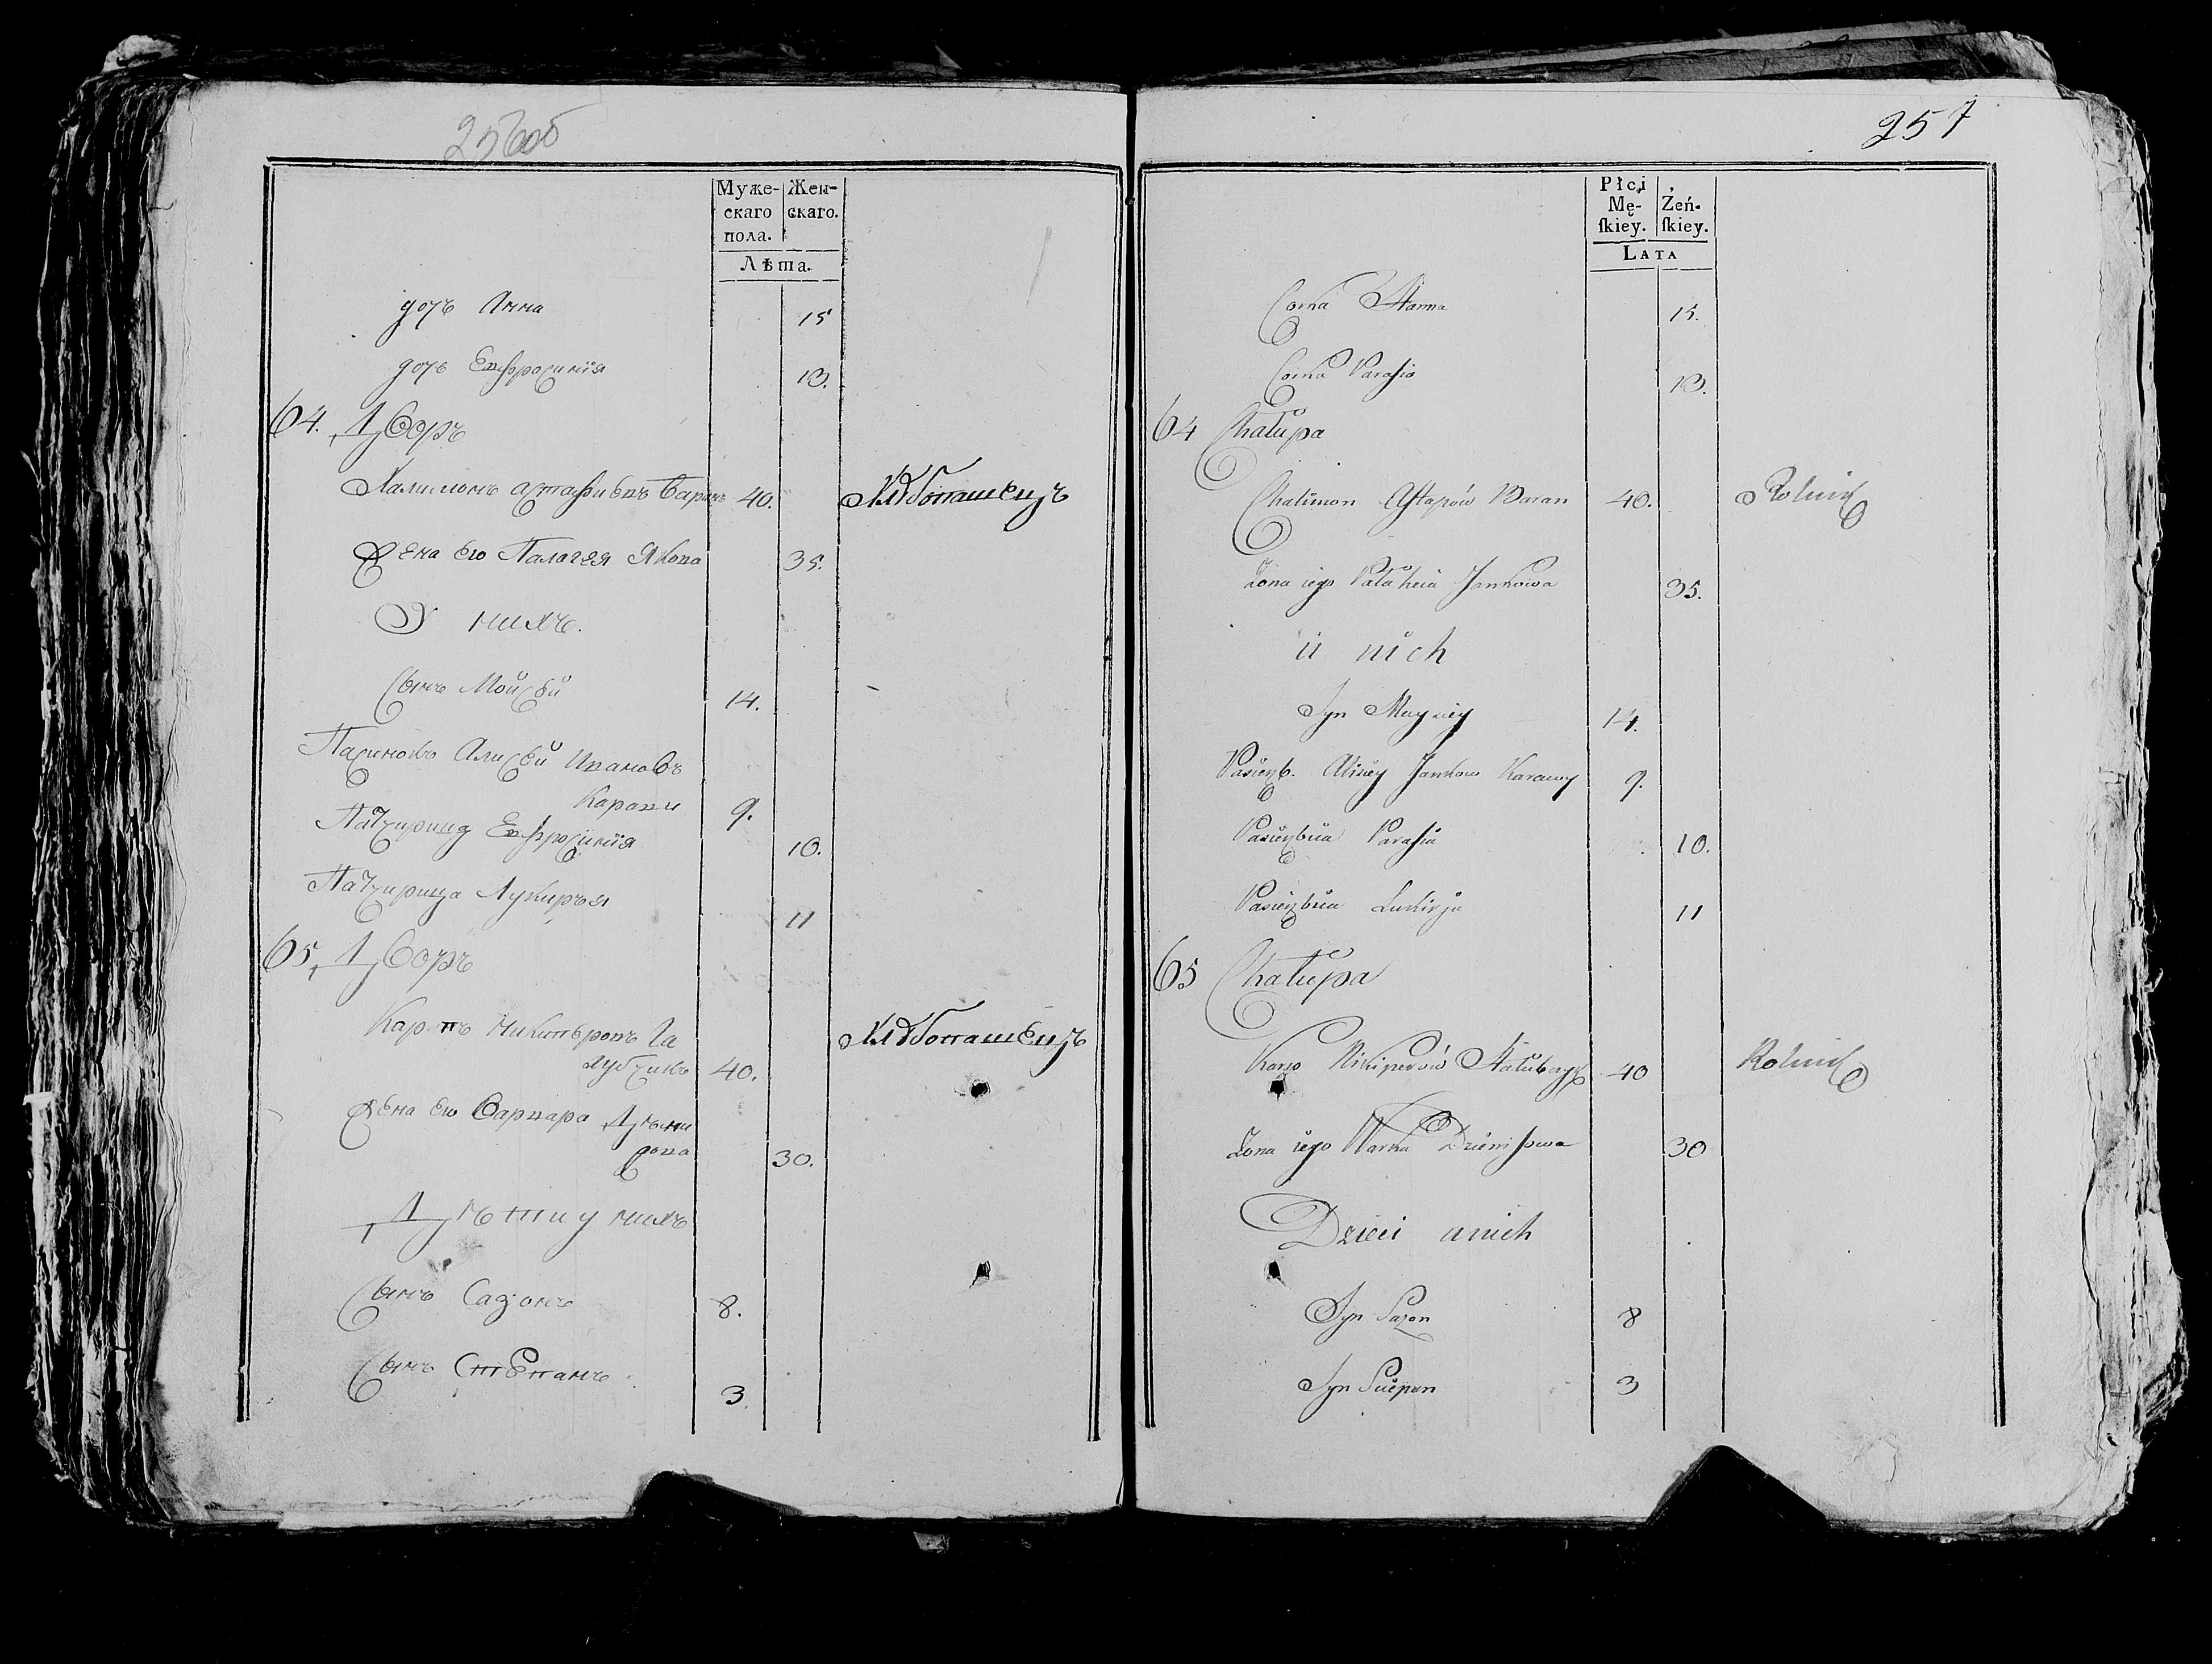 256об
Муже-
скаго
пола.
Жен-
скаго.
Лѣта.
дочь Анна 15
дочь Евфросинія 13.
64. Дворъ
Халимонъ Астафьевъ Баранъ 40. Хлѣбопашецъ
Жена его Палагея Якова 35.
У нихъ.
Сынъ Мойсей 14.
Пасинокъ Алисей Ивановъ
Карави 9.
Патчирица Евфросинія 10.
Патчирица Лукирья 11
65. Дворъ
Карпъ Никиперовъ Га
лубчикъ 40. Хлѣбопашецъ
Жена его Варвара Дѣни
сова 30.
Дѣти у нихъ
Сынъ Сазонъ 8.
Сынъ Степанъ 3.
257
Płci
Mę-
skiey.
Żeń-
skiey.
LATA
Corka Hanna 15.
Corka Parasia 13.
64 Chałupa
Chalimon Astapów Baran 40. Rolnik
Żona iego Pałaheia Jankowa 35.
u nich
Syn Maysiey 14.
Pasierzb. Alisiey Jankow Karawy 9.
Pasierzbica Parasia 10.
Pasierzbica Lukirja 11
65 Chałupa
Karp Nikiperów Hałubczyk 40 Rolnik
Żona iego Warka Dzienisowa 30
Dzieci u nich
Syn Sazon 8
Syn Sciepan 3